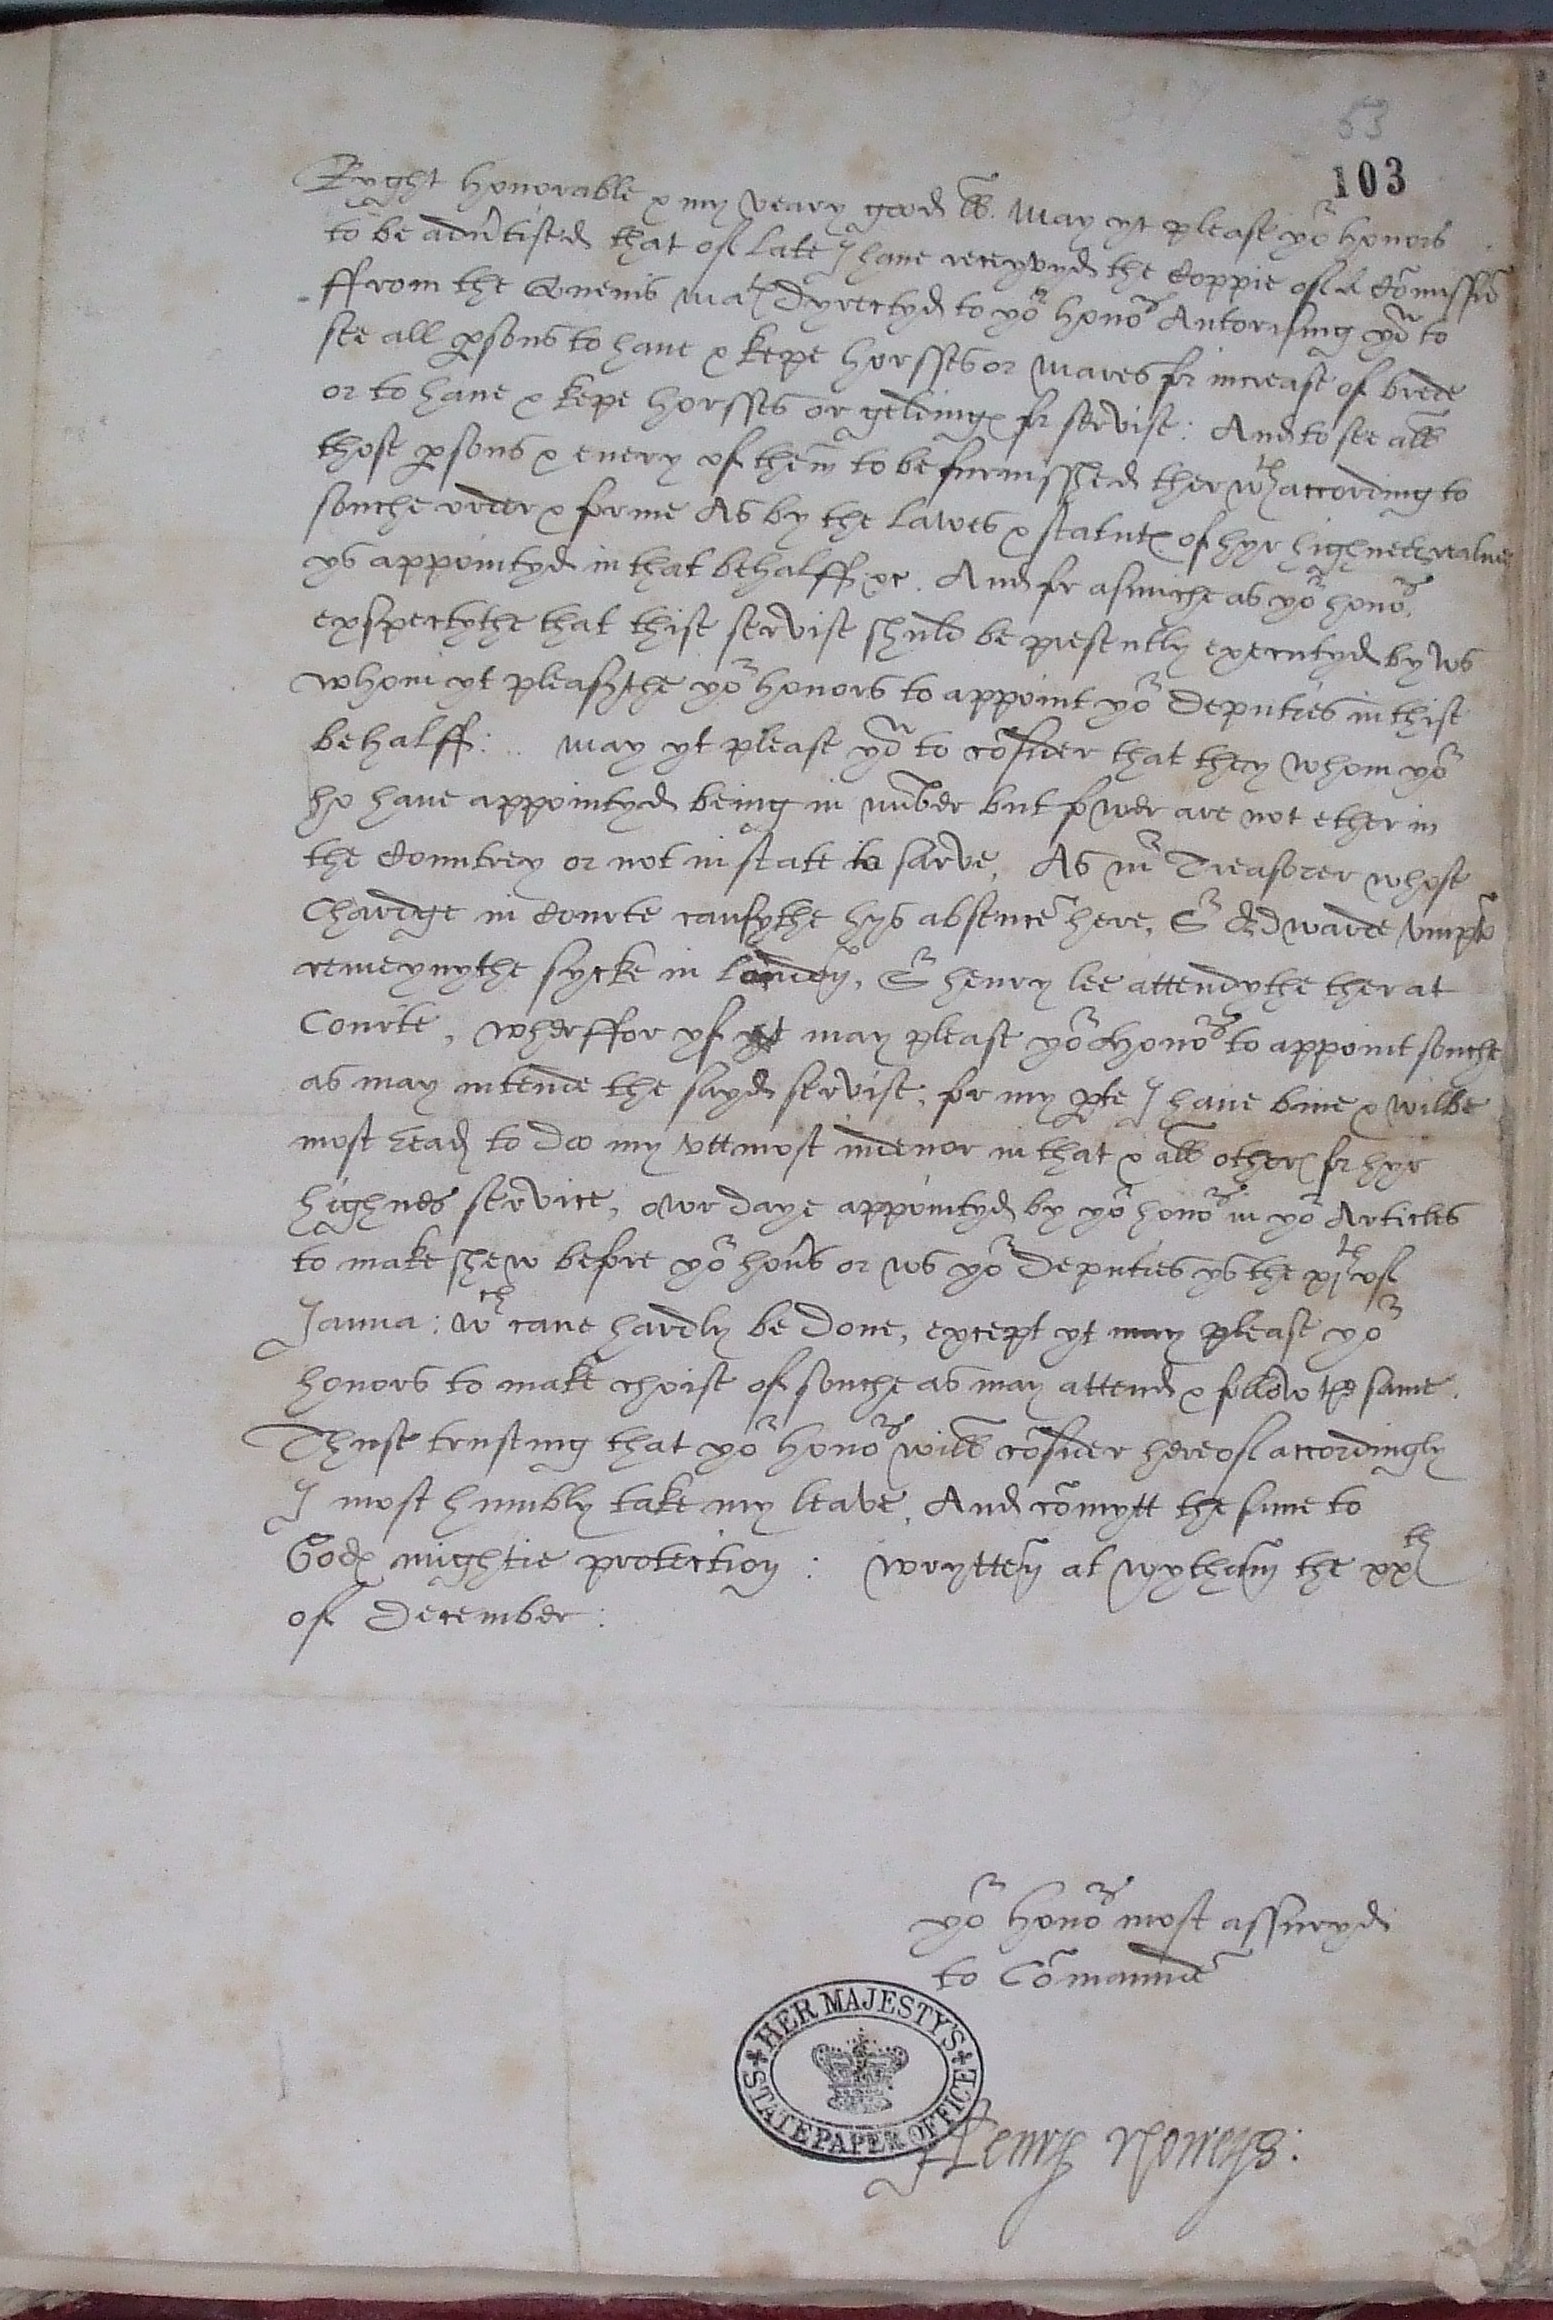 53
103
Ryght honorable & my veary good ll. May yt please yor honors
to be advrtised that of late I have receyvyd the Coppie of a Comissio
ffrom the Quenis Matie dyrectyd to yor honors Autorising you to
see all psons to have & kepe horsses or mares for increase of brede
or to have & kepe horsses or geldinges for servise: And to see all
those psons & every of them to be furnisshed ther wth according to
souche order & forme As by the lawes & statutes of hyr highnes realme
ys appointyd in that behalff &c. And for asmuche as yor honors
exspectythe that thise servise shuld be presently executyd by us
whom yt pleasythe yor honors to appoint yor deputies in thise
behalff: may yt please you to cosider that they whom yor
ho have appointyd being in nuber but fower are not ether in
the Countrey or not in state to sarve, As mr Treasorer whose
Chardge in Courte causythe hys absence here, Sr Edwarde Umpto
remeynythe sycke in london, Sr henry lee attendythe ther at
Courte, wherffor yf yt may please yor honors to appoint souche
as may intende the sayd servise, for my pte I have bine & wilbe
most read to doo my uttmost indevor in that & all others for hyr
highnes service, owr daye appointyd by yor honors in yor Articles
to make shew before yor honrs or us yor deputies ys the xjth of
Janua: wch cane hardly be done, except yt may please yor
honors to make choise of souche as may attend & follow the same.
Thuse trusting that yor honors will cosider hereof accordingly
I most humbly take my leave, And comytt the same to
Gods mightie protection: wrytten at wytham the xxth
of December:
yor honors most assuryd
to Comaunde
Henry Noreys:
HER MAJESTY'S STATE PAPER OFFICE